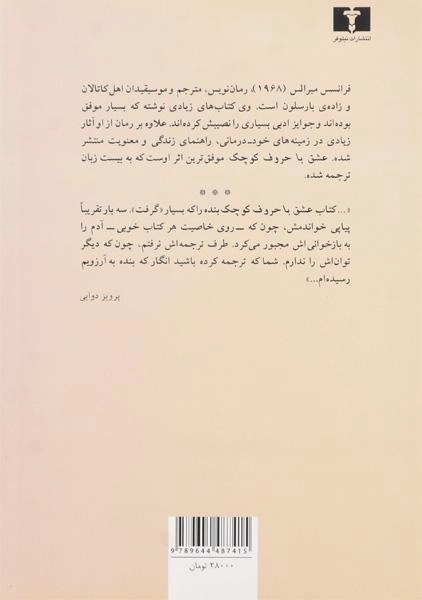 انتشارات نیلوفر
فرانسس میرالس (۱۹۶۸)، رمان‌نویس، مترجم و موسیقیدان اهل کاتالان
و زاده‌ی بارسلون است. وی کتاب‌های زیادی نوشته که بسیار موفق
بوده‌اند و جوایز ادبی بسیاری را نصیبش کرده‌اند. علاوه بر رمان از او آثار
زیادی در زمینه‌های خود-درمانی، راهنمای زندگی و معنویت منتشر
شده. عشق با حروف کوچک موفق‌ترین اثر اوست که به بیست زبان
ترجمه شده.
* * *
«...کتاب عشق با حروف کوچک بنده را که بسیار «گرفت». سه بار تقریباً
پیاپی خواندمش، چون که ــ روی خاصیت هر کتاب خوبی ــ آدم را
به بازخوانی‌اش مجبور می‌کرد. طرف ترجمه‌اش نرفتم، چون که دیگر
توان‌اش را ندارم. شما که ترجمه کرده باشید انگار که بنده به آرزویم
رسیده‌ام...»
پرویز دوایی
9 789644 487415
۲۸۰۰۰ تومان